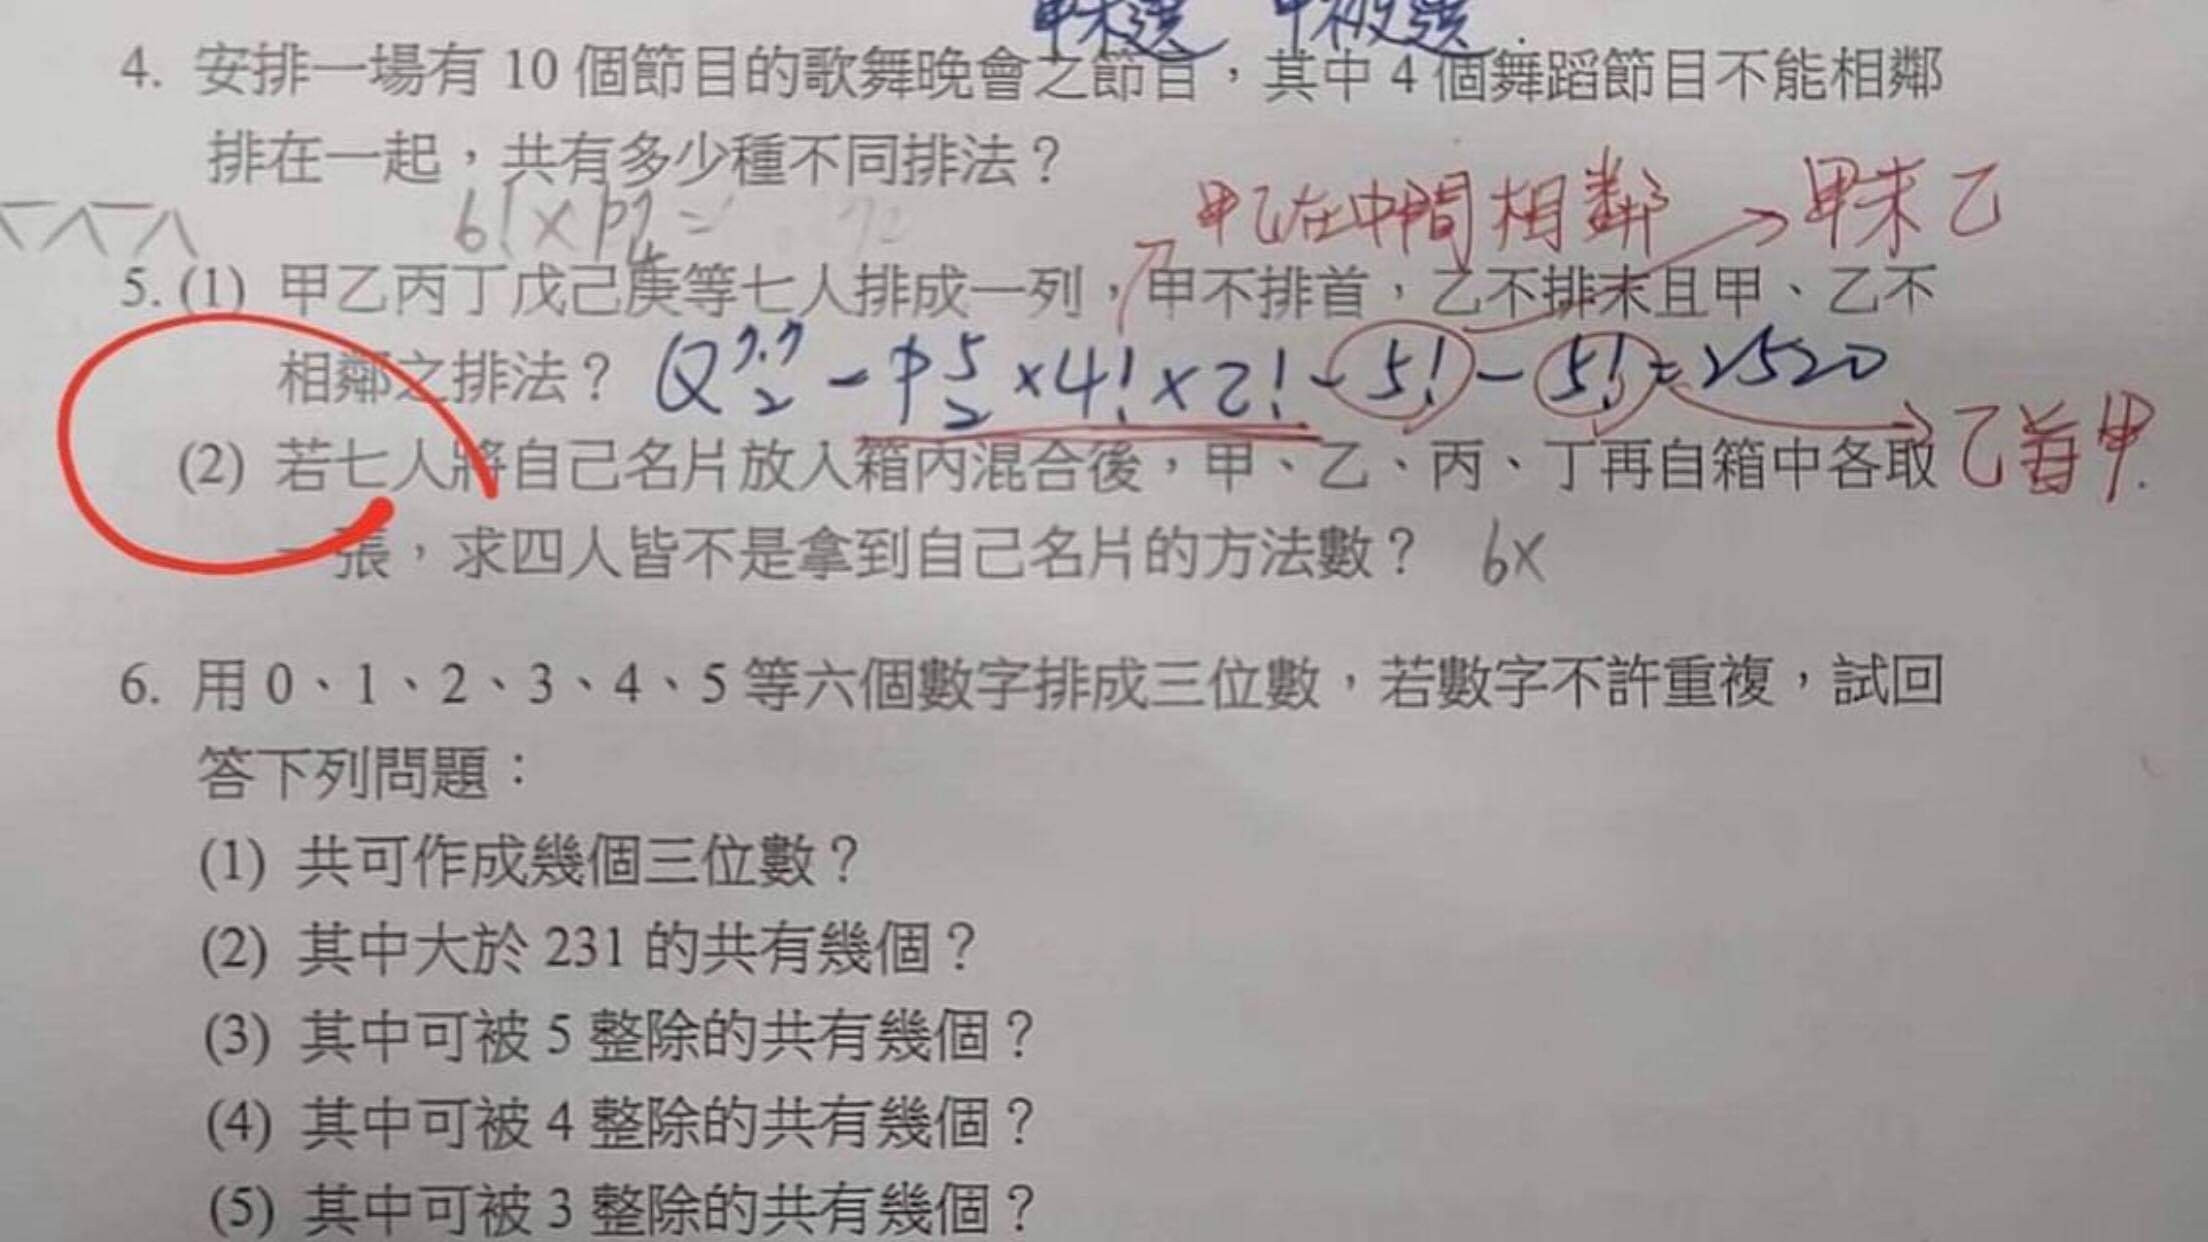 甲未選 甲被選.
4. 安排一場有 10 個節目的歌舞晚會之節目，其中 4 個舞蹈節目不能相鄰
排在一起，共有多少種不同排法？
6! × P⁷₄ =
甲乙在中間相鄰 甲末乙
5. (1) 甲乙丙丁戊己庚等七人排成一列，甲不排首，乙不排末且甲、乙不
相鄰之排法？ Q⁷·⁷₂ - P⁵₂ × 4! × 2! - 5! - 5! = 2520
乙首甲.
(2) 若七人將自己名片放入箱內混合後，甲、乙、丙、丁再自箱中各取
一張，求四人皆不是拿到自己名片的方法數？ 6×
6. 用 0、1、2、3、4、5 等六個數字排成三位數，若數字不許重複，試回
答下列問題：
(1) 共可作成幾個三位數？
(2) 其中大於 231 的共有幾個？
(3) 其中可被 5 整除的共有幾個？
(4) 其中可被 4 整除的共有幾個？
(5) 其中可被 3 整除的共有幾個？